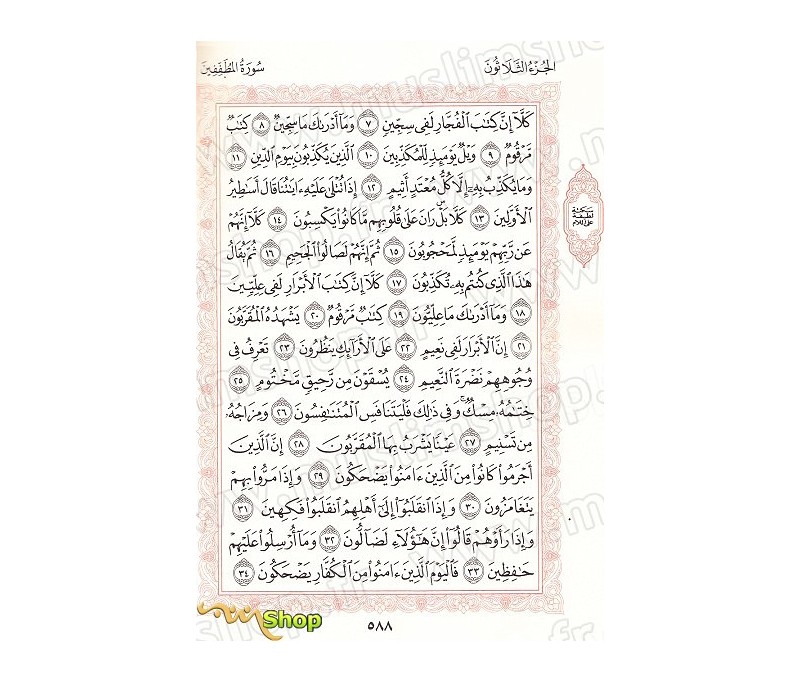 الجُزْءُ الثَّلَاثُونَ
سُورَةُ المُطَفِّفِينَ
كَلَّآ إِنَّ كِتَٰبَ ٱلْفُجَّارِ لَفِى سِجِّينٍ ٧ وَمَآ أَدْرَىٰكَ مَا سِجِّينٌ ٨ كِتَٰبٌ
مَّرْقُومٌ ٩ وَيْلٌ يَوْمَئِذٍ لِّلْمُكَذِّبِينَ ١٠ ٱلَّذِينَ يُكَذِّبُونَ بِيَوْمِ ٱلدِّينِ ١١
وَمَا يُكَذِّبُ بِهِۦٓ إِلَّا كُلُّ مُعْتَدٍ أَثِيمٍ ١٢ إِذَا تُتْلَىٰ عَلَيْهِ ءَايَٰتُنَا قَالَ أَسَٰطِيرُ
ٱلْأَوَّلِينَ ١٣ كَلَّا بَلْ رَانَ عَلَىٰ قُلُوبِهِم مَّا كَانُوا۟ يَكْسِبُونَ ١٤ كَلَّآ إِنَّهُمْ
عَن رَّبِّهِمْ يَوْمَئِذٍ لَّمَحْجُوبُونَ ١٥ ثُمَّ إِنَّهُمْ لَصَالُوا۟ ٱلْجَحِيمِ ١٦ ثُمَّ يُقَالُ
هَٰذَا ٱلَّذِى كُنتُم بِهِۦ تُكَذِّبُونَ ١٧ كَلَّآ إِنَّ كِتَٰبَ ٱلْأَبْرَارِ لَفِى عِلِّيِّينَ
١٨ وَمَآ أَدْرَىٰكَ مَا عِلِّيُّونَ ١٩ كِتَٰبٌ مَّرْقُومٌ ٢٠ يَشْهَدُهُ ٱلْمُقَرَّبُونَ
٢١ إِنَّ ٱلْأَبْرَارَ لَفِى نَعِيمٍ ٢٢ عَلَى ٱلْأَرَآئِكِ يَنظُرُونَ ٢٣ تَعْرِفُ فِى
وُجُوهِهِمْ نَضْرَةَ ٱلنَّعِيمِ ٢٤ يُسْقَوْنَ مِن رَّحِيقٍ مَّخْتُومٍ ٢٥
خِتَٰمُهُۥ مِسْكٌ ۚ وَفِى ذَٰلِكَ فَلْيَتَنَافَسِ ٱلْمُتَنَٰفِسُونَ ٢٦ وَمِزَاجُهُۥ
مِن تَسْنِيمٍ ٢٧ عَيْنًا يَشْرَبُ بِهَا ٱلْمُقَرَّبُونَ ٢٨ إِنَّ ٱلَّذِينَ
أَجْرَمُوا۟ كَانُوا۟ مِنَ ٱلَّذِينَ ءَامَنُوا۟ يَضْحَكُونَ ٢٩ وَإِذَا مَرُّوا۟ بِهِمْ
يَتَغَامَزُونَ ٣٠ وَإِذَا ٱنقَلَبُوٓا۟ إِلَىٰٓ أَهْلِهِمُ ٱنقَلَبُوا۟ فَكِهِينَ ٣١
وَإِذَا رَأَوْهُمْ قَالُوٓا۟ إِنَّ هَٰٓؤُلَآءِ لَضَآلُّونَ ٣٢ وَمَآ أُرْسِلُوا۟ عَلَيْهِمْ
حَٰفِظِينَ ٣٣ فَٱلْيَوْمَ ٱلَّذِينَ ءَامَنُوا۟ مِنَ ٱلْكُفَّارِ يَضْحَكُونَ ٣٤
سكتة
لطيفة
على اللام
٥٨٨
Shop